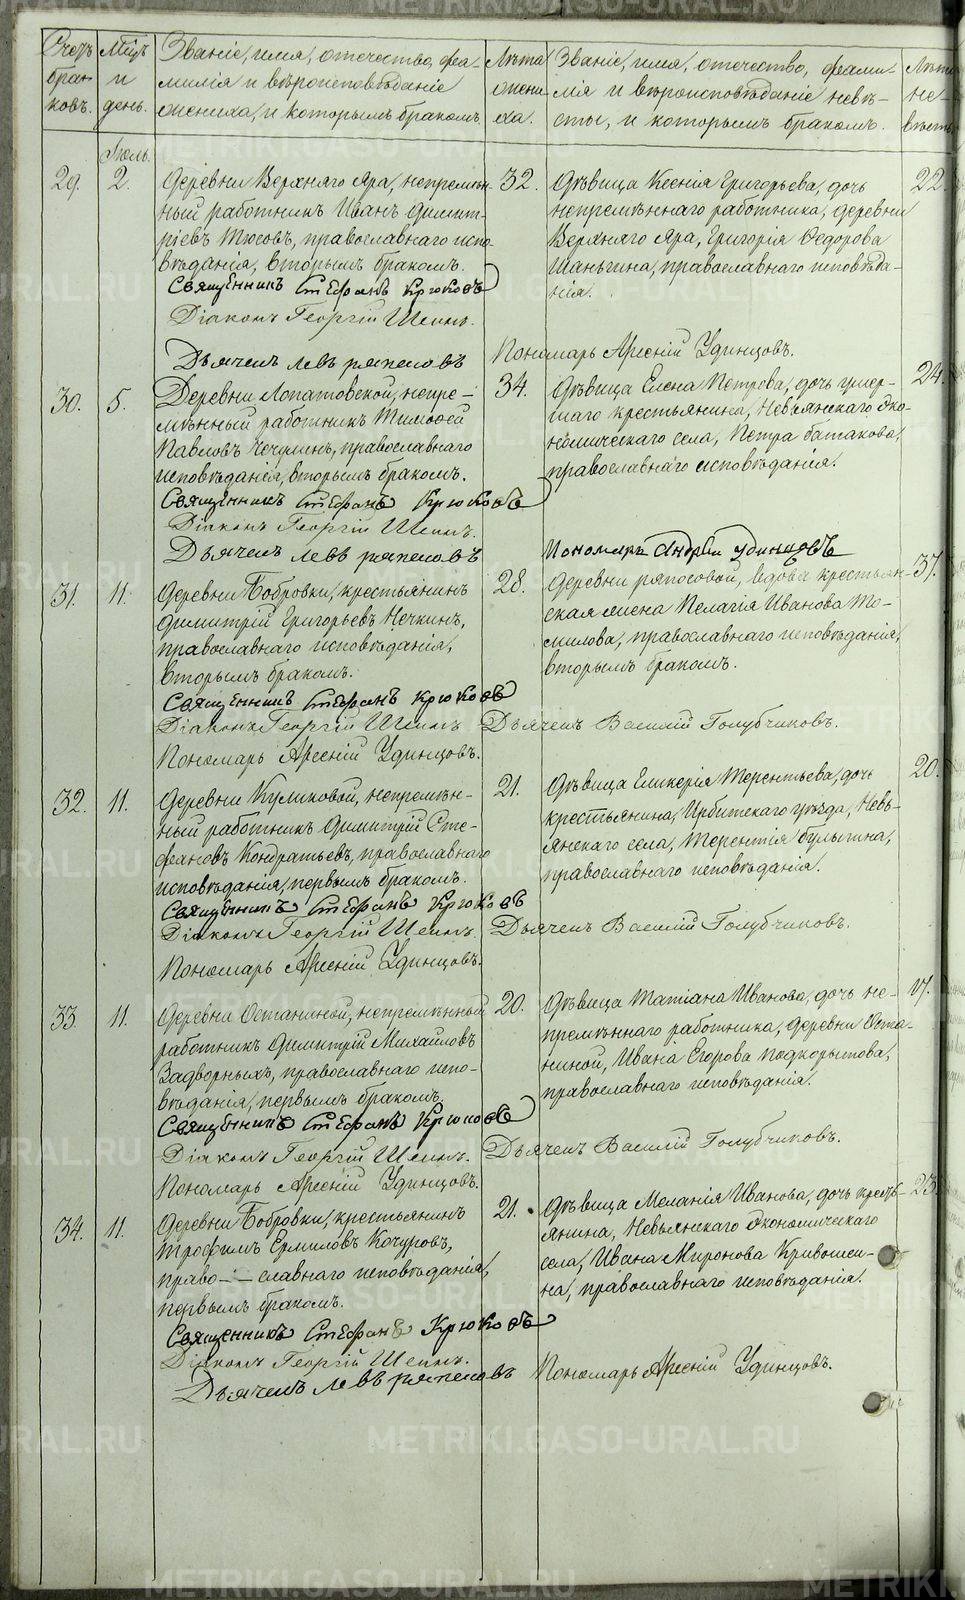 Счетъ браковъ.
Мѣцъ и день.
Званіе, имя, отечество, фамилія и вѣроисповѣданіе жениха, и которымъ бракомъ.
Лѣта жениха.
Званіе, имя, отечество, фамилія и вѣроисповѣданіе невѣсты, и которымъ бракомъ.
Лѣта невѣсты
Іюль.
29. 2.
Деревни Верхняго Яра, непремѣн-
ный работникъ Иванъ Димит-
ріевъ Тюсовъ, православнаго испо-
вѣданія, вторымъ бракомъ.
32.
Дѣвица Ксенія Григорьева, дочь
непремѣннаго работника, деревни
Верхняго Яра, Григорія Ѳедорова
Шаньгина, православнаго исповѣда-
нія.
22.
Священникъ Стефанъ Крюковъ
Діаконъ Георгій Шеинъ.
Дьячекъ Левъ Ряпосовъ
Пономарь Арсеній Удинцовъ.
30. 5.
Деревни Лопатовской, непре-
мѣнный работникъ Тимоѳей
Павловъ Чечулинъ, православнаго
исповѣданія, вторымъ бракомъ.
34.
Дѣвица Елена Петрова, дочь умер-
шаго крестьянина, Невьянскаго эко-
номическаго села, Петра Батакова,
православнаго исповѣданія.
24.
Священникъ Стефанъ Крюковъ
Діаконъ Георгій Шеинъ.
Дьячекъ Левъ Ряпосовъ
Пономарь Андрей Удинцовъ
31. 11.
Деревни Бобровки, крестьянинъ
Димитрій Григорьевъ Нечкинъ,
православнаго исповѣданія,
вторымъ бракомъ.
28.
Деревни Ряпосовой, вдова крестьян-
ская жена Пелагія Иванова То-
милова, православнаго исповѣданія,
вторымъ бракомъ.
37.
Священникъ Стефанъ Крюковъ
Діаконъ Георгій Шеинъ Дьячекъ Василій Голубчиковъ.
Пономарь Арсеній Удинцовъ.
32. 11.
Деревни Куликовой, непремѣн-
ный работникъ Димитрій Сте-
фановъ Кондратьевъ, православнаго
исповѣданія, первымъ бракомъ.
21.
Дѣвица Гликерія Терентьева, дочь
крестьянина, Ирбитскаго уѣзда, Невь-
янскаго села, Терентія Булыгина,
православнаго исповѣданія.
20.
Священникъ Стефанъ Крюковъ
Діаконъ Георгій Шеинъ. Дьячекъ Василій Голубчиковъ.
Пономарь Арсеній Удинцовъ.
33. 11.
Деревни Останиной, непремѣнный
работникъ Димитрій Михаиловъ
Задворныхъ, православнаго испо-
вѣданія, первымъ бракомъ.
20.
Дѣвица Татіана Иванова, дочь не-
премѣннаго работника, деревни Оста-
ниной, Ивана Егорова Подкорытова,
православнаго исповѣданія.
17.
Священникъ Стефанъ Крюковъ
Діаконъ Георгій Шеинъ. Дьячекъ Василій Голубчиковъ.
Пономарь Арсеній Удинцовъ.
34. 11.
Деревни Бобровки, крестьянинъ
Трофимъ Ермиловъ Кочуровъ,
право- - славнаго исповѣданія,
первымъ бракомъ.
21.
Дѣвица Меланія Иванова, дочь кресть-
янина, Невьянскаго экономическаго
села, Ивана Миронова Кривошеи-
на, православнаго исповѣданія.
23.
Священникъ Стефанъ Крюковъ
Діаконъ Георгій Шеинъ.
Дьячекъ Левъ Ряпосовъ Пономарь Арсеній Удинцовъ.
METRIKI.GASO-URAL.RU